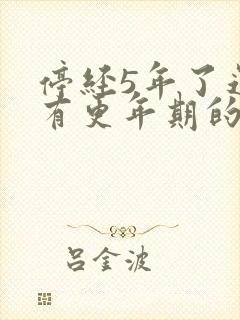 停经5年了还
有更年期的
吕金波